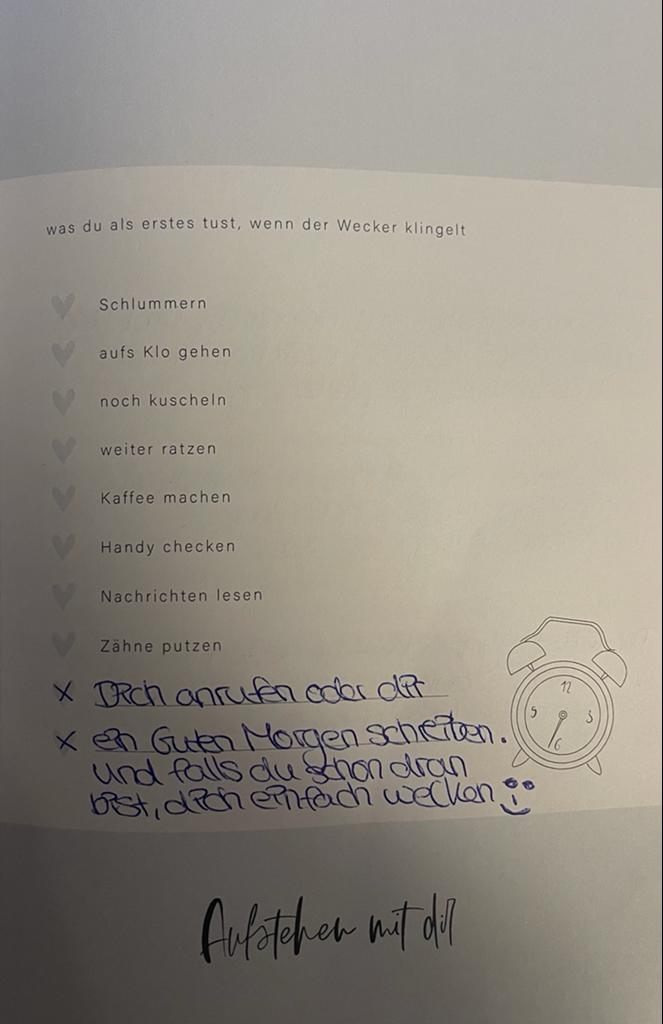 was du als erstes tust, wenn der Wecker klingelt
Schlummern
aufs Klo gehen
noch kuscheln
weiter ratzen
Kaffee machen
Handy checken
Nachrichten lesen
Zähne putzen
x Dich anrufen oder dir
x ein Guten Morgen schreiben.
und falls du schon dran
bist, dich einfach wecken
12
9 3
6
Aufstehen mit dir